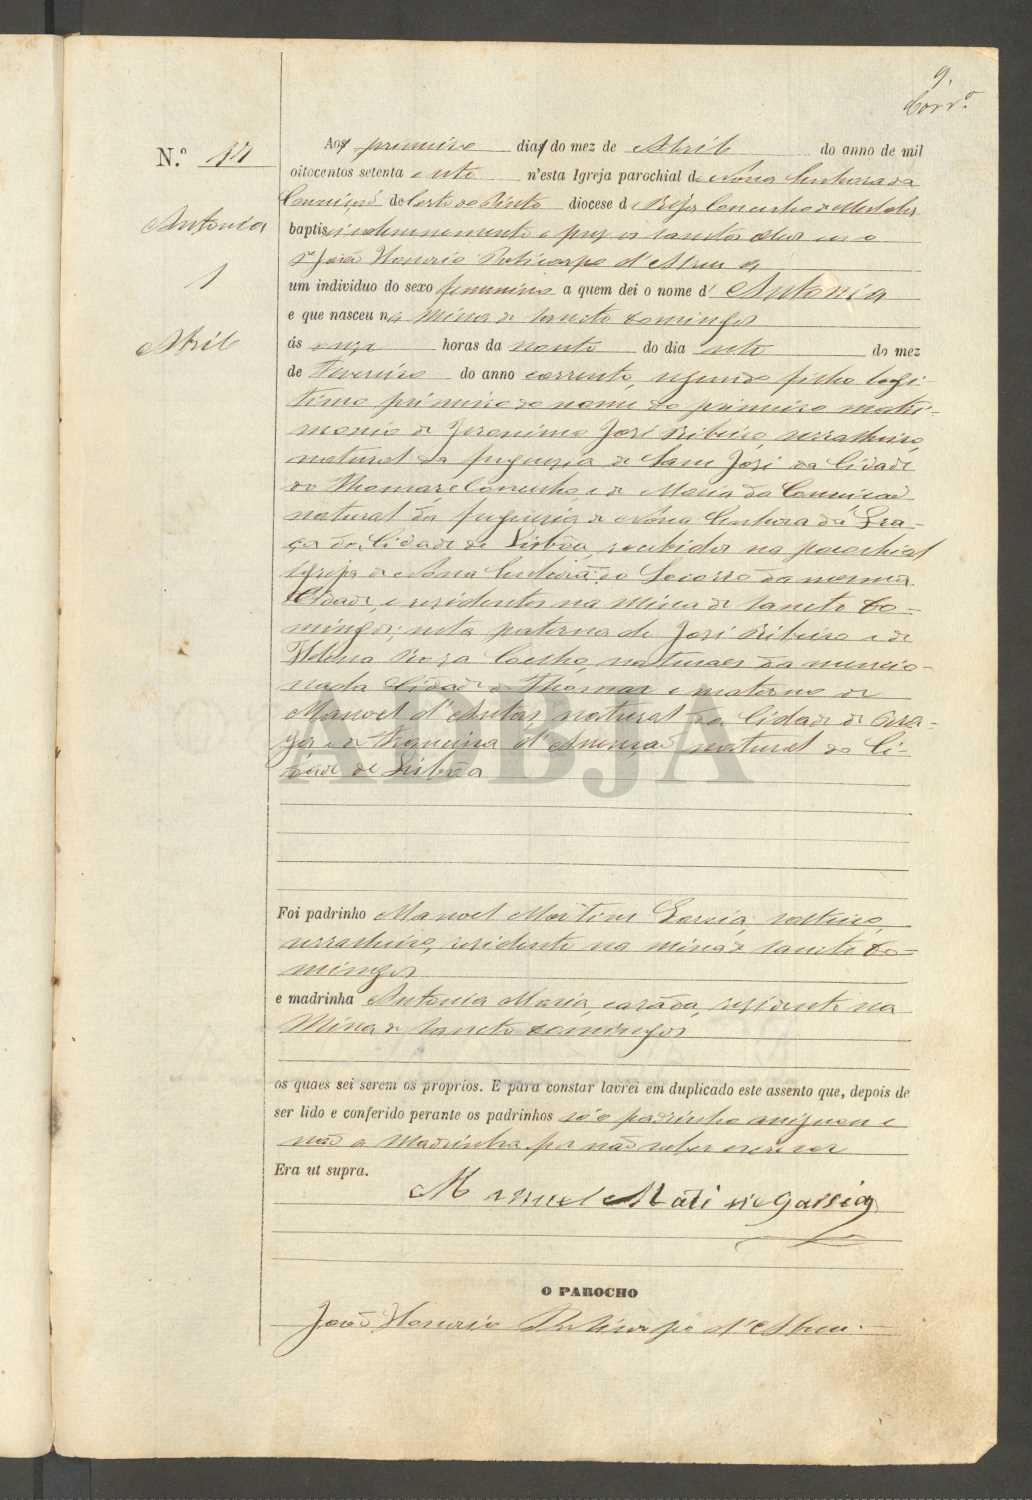 9.
Corr.º
N.º 17
Antonia
1
Abril
Aos primeiro dias do mez de Abril do anno de mil
oitocentos setenta e sete n'esta Igreja parochial de Nossa Senhora da
Conceição de Corte do Pinto diocese de Beja Concelho de Mertola
baptisei solemnemente e puz os sanctos oleos eu o
Pe João Honorio Policarpo d'Abreu a
um individuo do sexo feminino a quem dei o nome d' Antonia
e que nasceu na Mina de Sancto Domingos
ás onze horas da noute do dia sete do mez
de Fevereiro do anno corrente, segundo filho legi-
timo primeiro do nome do primeiro matri-
monio de Jeronimo José Ribeiro, serralheiro,
natural da freguesia de Sam José da Cidade
de Thomar e Concelho, e de Maria da Conceição
natural da freguesia de Nossa Senhora da Gra-
ça da Cidade de Lisboa, recebidos na parochial
Igreja de Nossa Senhora do Socorro da mesma
Cidade, e residentes na Mina de Sancto Do-
mingos; neta paterna de José Ribeiro e de
Roza Coelho, naturaes da mencio-
nada Cidade de Thomar e materna de
Manoel d'Antas natural da Cidade de Bra-
ga e de Francisca d'Assumpção natural da Ci-
dade de Lisboa
ADBJA
Foi padrinho Manoel Martins Garcia, solteiro,
serralheiro, residente na Mina de Sancto Do-
mingos
e madrinha Antonia Maria, casada, residente na
Mina de Sancto Domingos
os quaes sei serem os proprios. E para constar lavrei em duplicado este assento que, depois de
ser lido e conferido perante os padrinhos só o padrinho assignou e
não a Madrinha por não saber escrever
Era ut supra.
Manuel Matis Garsia
O PAROCHO
João Honorio Policarpo d'Abreu.